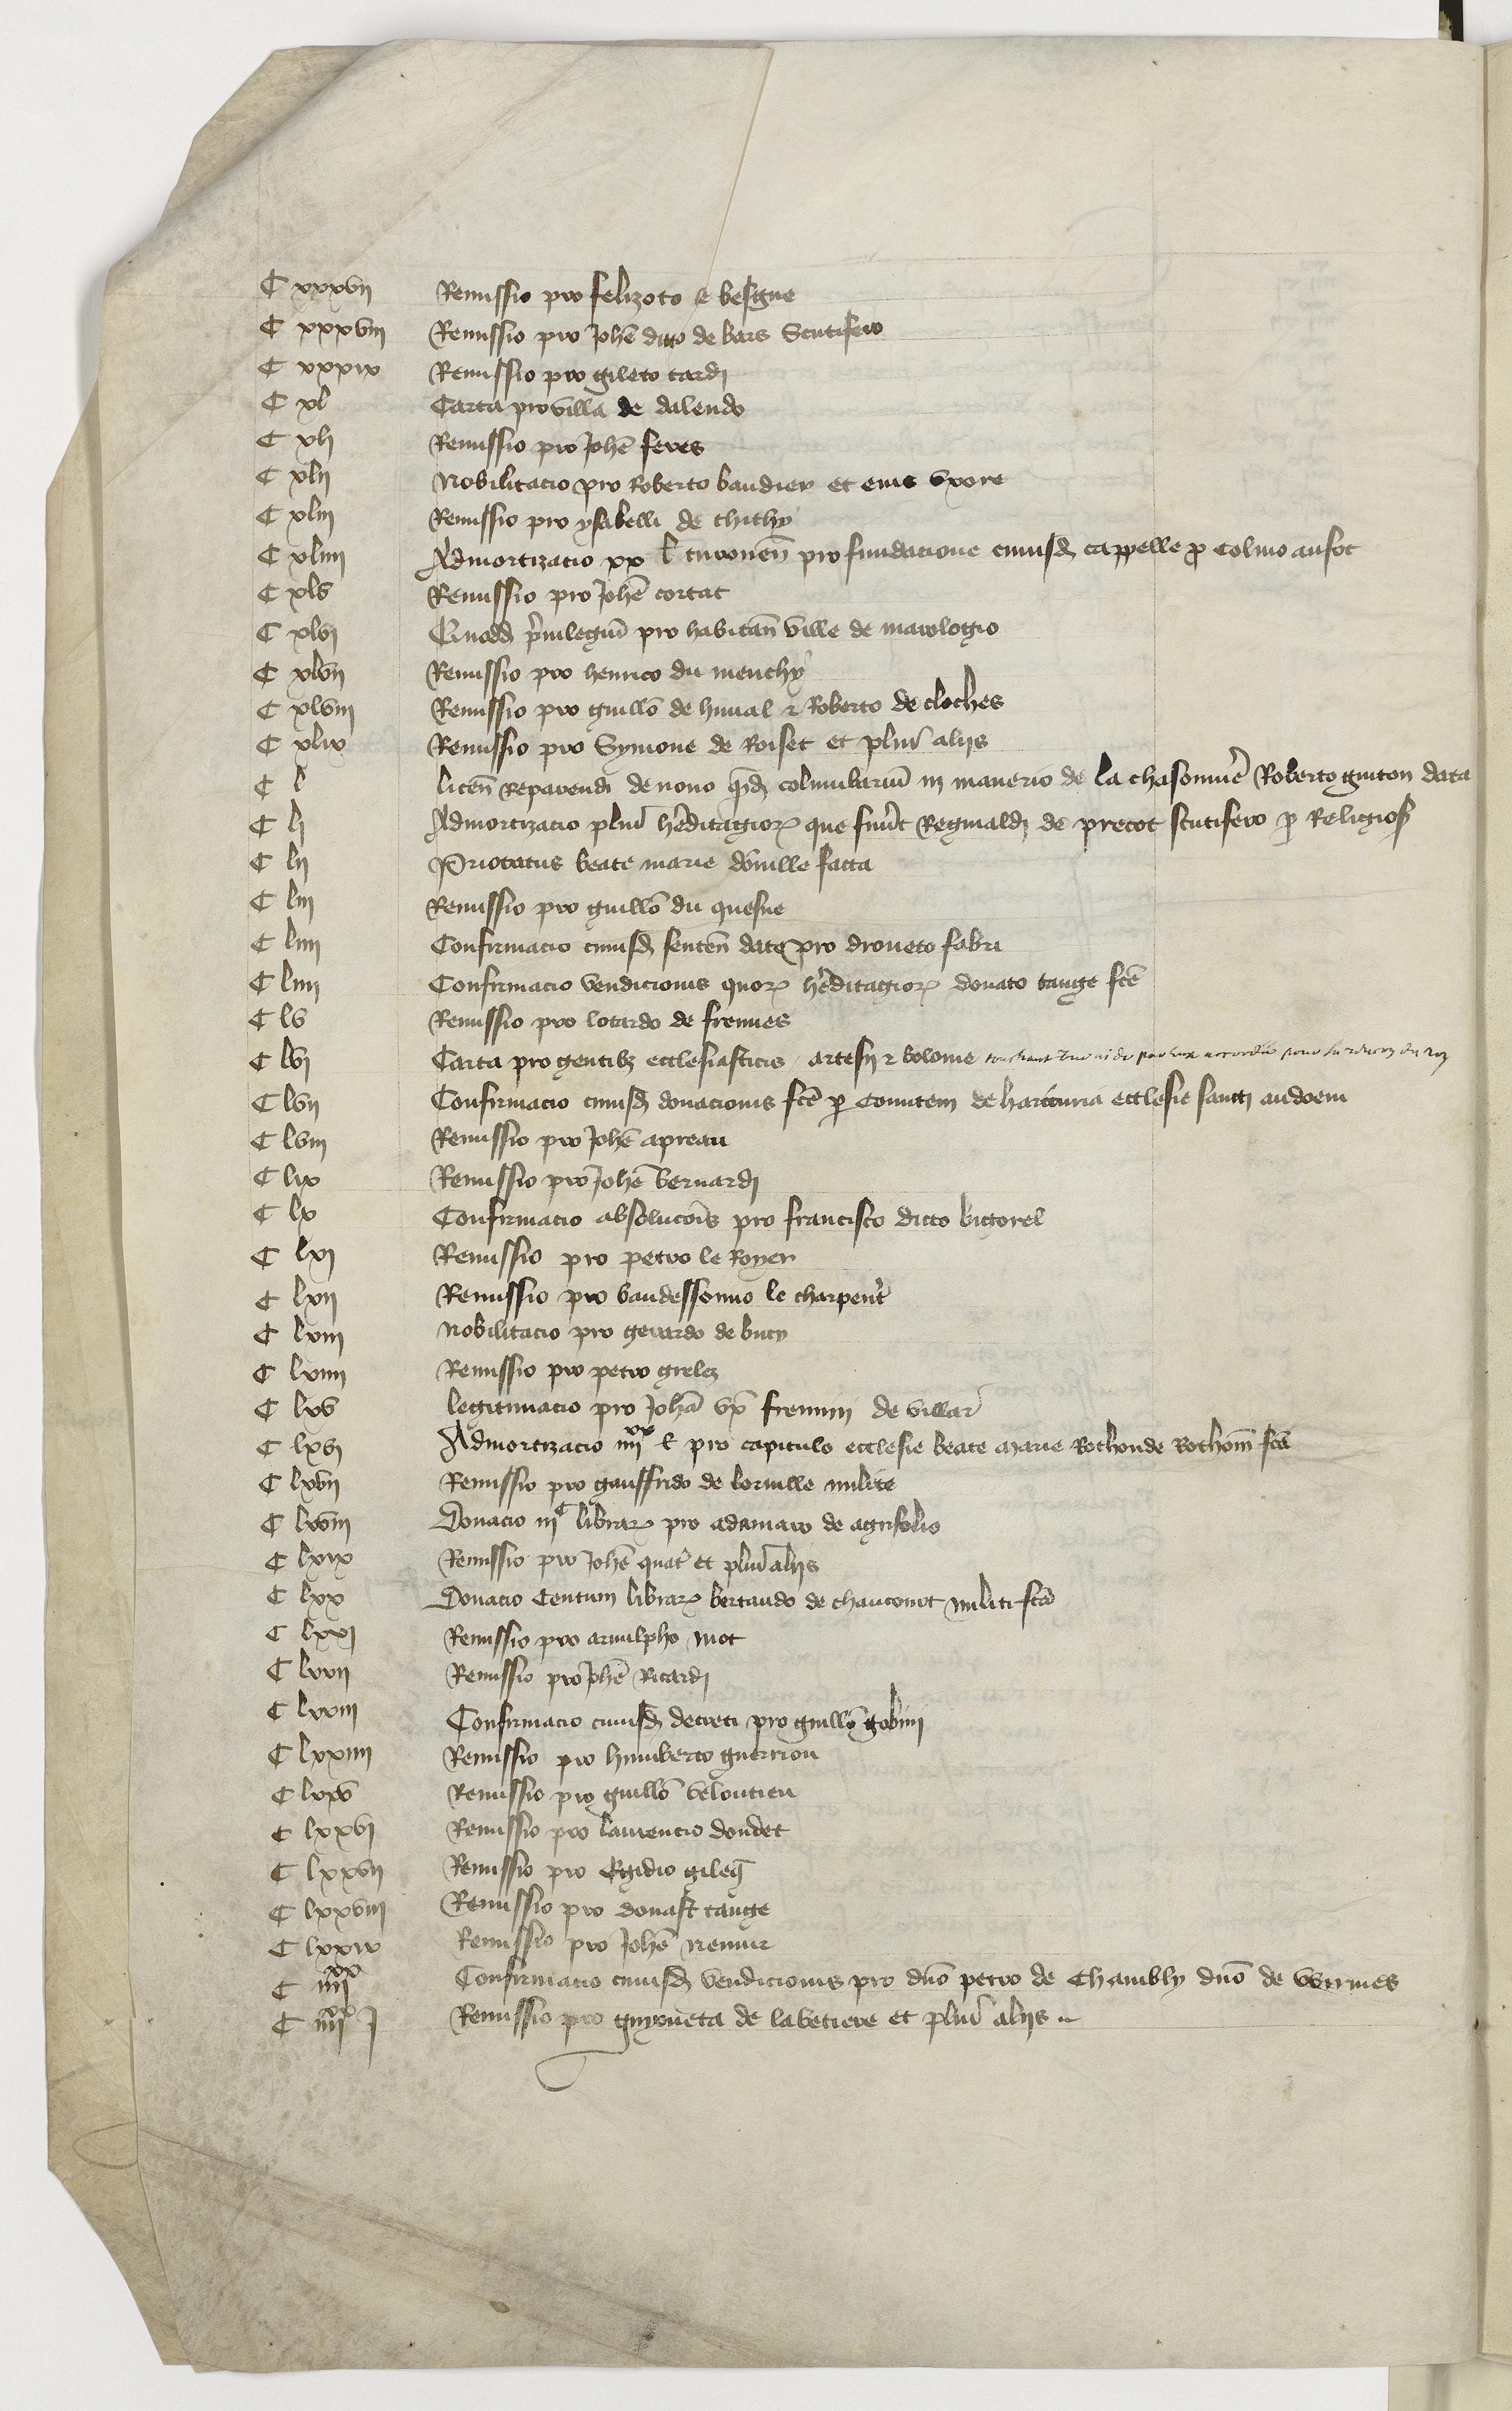 C xxxvij Remissio pro felizoto le besgue
C xxxviij Remissio pro Joh̄e dicto de bars Scutifero
C xxxix Remissio pro gileto tardj
C xl Carta pro villa de dalendo
C xlj Remissio pro Joh̄e feres
C xlij Nobilitacio pro Roberto baudier et eius vxore
C xliij Remissio pro ysabelli de thithy
C xliiij Admortizacio xx l turonen̄ pro fundacione cuiusd̄ cappelle p̱ Colino ansot
C xlv Remissio pro Joh̄e cortat
C xlvj Quodd p̄uilegiū pro habitan̄ ville de marologio
C xlvij Remissio pro henrico du menchy
C xlviij Remissio pro guillō de hinial ⁊ Roberto de cloches
C xlix Remissio pro Symone de Roiset et plur̄ alijs
C l licen̄ Reparendi de nouo qd̄ columbariū in manerio de la chasonnier̄e Roberto guiton data
C lj Admortizacio pluriū heditagioꝝ que fuer̄t Reginaldj de precot scutifero p̱ Religios
C lij Prioratus beate marie domuille facta
C liij Remissio pro guillō du quesne
C liiij Confirmacio cuiusd̄ senten̄ date pro droueto fabri
C liiij Confirmacio vendicionis quoꝝ heditagioꝝ donato tange fcē
C lv Remissio pro lotardo de fremies
C lvj Carta pro gentibꝫ ecclesiasticis artesij ⁊ bolonie touchant
C lvij Confirmacio cuiusd̄ donacionis fcē p̱ Comitem de haricuria ecclesie sancti audoeni
C lviij Remissio pro Joh̄e apreau
C lix Remissio pro Joh̄e bernardj
C lx Confirmacio absolucōis pro francisco dicto bigorel
C lxj Remissio pro petro le Royer
C lxij Remissio pro baudessonno le charpent̄
C lxiij Nobilitacio pro gerardo de bucy
C lxiiij Remissio pro petro grelez
C lxv legitimacio pro Joh̄a vx̄ fremini de villar̄
C lxvj Admortizacio iiijxx l pro capitulo ecclesie beate marie Rothonde Rothom̄ fcā
C lxvij Remissio pro gauffrido de loruille milite
C lxviij Donacio iijC libraꝝ pro ademaro de agrifolio
C lxix Remissio pro Joh̄e quat̄ et plur̄ alijs
C lxx Donacio Centum libraꝝ bertaudo de chanconot militi fcā
C lxxj Remissio pro arnulpho mot
C lxxij Remissio pro Joh̄e Ricardj
C lxxiij Confirmacio cuiusd̄ decreti pro guillō gobini
C lxxiiij Remissio pro humberto guerriou
C lxxv Remissio pro guillō veloutieu
C lxxvj Remissio pro laurencio dondet
C lxxvij Remissio pro Egidio gileq̄
C lxxviij Remissio pro donast tange
C lxxix Remissio pro Joh̄e remur
C iiijxx Confirmacio cuiusd̄ vendicionis pro dn̄o petro de Chambly dn̄o de wirmes
C iiijxx j Remissio pro guyoneta de labetiere et plur̄ alijs